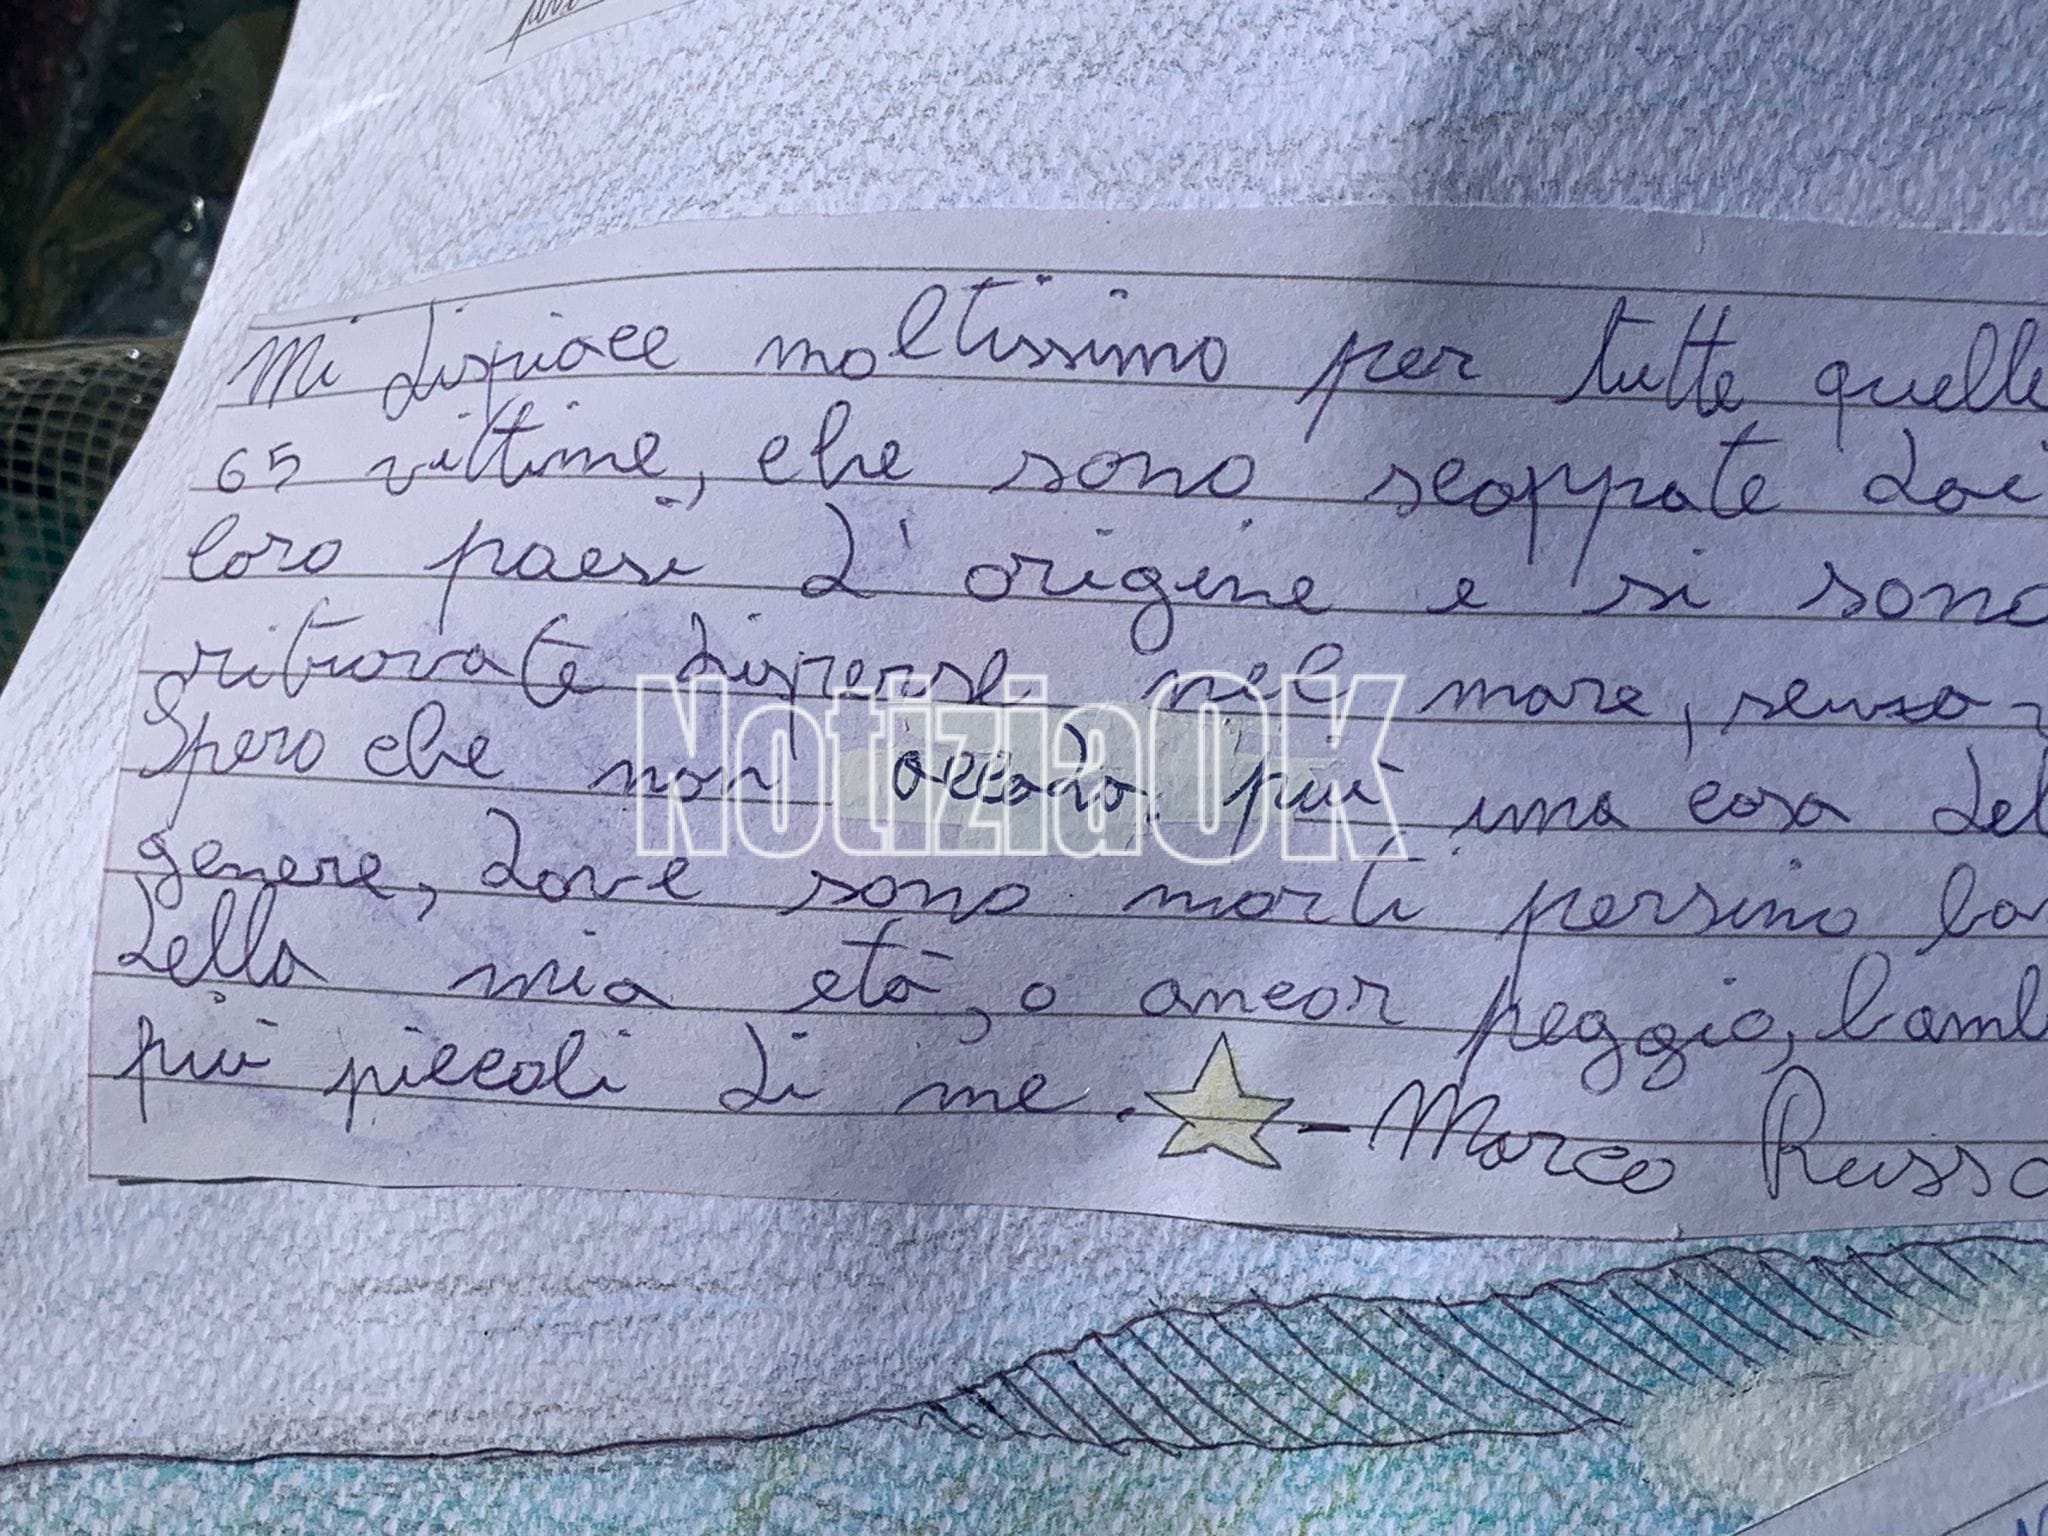 Mi dispiace moltissimo per tutte quelle
65 vittime, che sono scappate dai
loro paesi d'origine e si sono
ritrovate disperse nel mare, senza
Spero che non accada più una cosa del
genere, dove sono morti persino
della mia età, o ancor peggio,
più piccoli di me. - Marco Russo
NotiziaOK